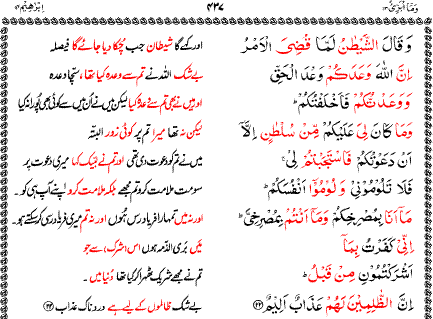 وَمَآ اُبَرِّئُ ۱۳ ۴۳۷ اِبْرٰهِیْم ۱۴
وَقَالَ الشَّیْطٰنُ لَمَّا قُضِیَ الْاَمْرُ
اِنَّ اللّٰهَ وَعَدَكُمْ وَعْدَ الْحَقِّ
وَوَعَدْتُّكُمْ فَاَخْلَفْتُكُمْ ؕ
وَمَا كَانَ لِیَ عَلَیْكُمْ مِّنْ سُلْطٰنٍ اِلَّاۤ
اَنْ دَعَوْتُكُمْ فَاسْتَجَبْتُمْ لِیْ ۚ
فَلَا تَلُوْمُوْنِیْ وَلُوْمُوْۤا اَنْفُسَكُمْ ؕ
مَاۤ اَنَا بِمُصْرِخِكُمْ وَمَاۤ اَنْتُمْ بِمُصْرِخِیَّ ؕ
اِنِّیْ كَفَرْتُ بِمَاۤ
اَشْرَكْتُمُوْنِ مِنْ قَبْلُ ؕ
اِنَّ الظّٰلِمِیْنَ لَهُمْ عَذَابٌ اَلِیْمٌ ﴿۲۲﴾
اور کہے گا شیطان جب چُکا دیا جائے گا فیصلہ
بے شک اللہ نے تم سے وعدہ کیا تھا، سچا وعدہ
اور میں نے بھی تم سے وعدہ کیا لیکن میں نے اُن میں سے کوئی بھی پُورا نہ کیا
لیکن نہ تھا میرا تم پر کوئی زور البتہ
میں نے تم کو دعوت دی تھی اور تم نے لبیک کہا میری دعوت پر
سو مت ملامت کرو تم مجھے بلکہ ملامت کرو اپنے آپ ہی کو۔
اور نہ میں تمہارا فریاد رس ہُوں اور نہ تم میری فریاد رسی کر سکتے ہو۔
میں بری الذمہ ہوں اس شرک سے جو
تم نے مجھے شریک ٹھہرا کر کیا تھا دُنیا میں۔
بے شک ظالموں کے لیے ہے دردناک عذاب ﴿۲۲﴾